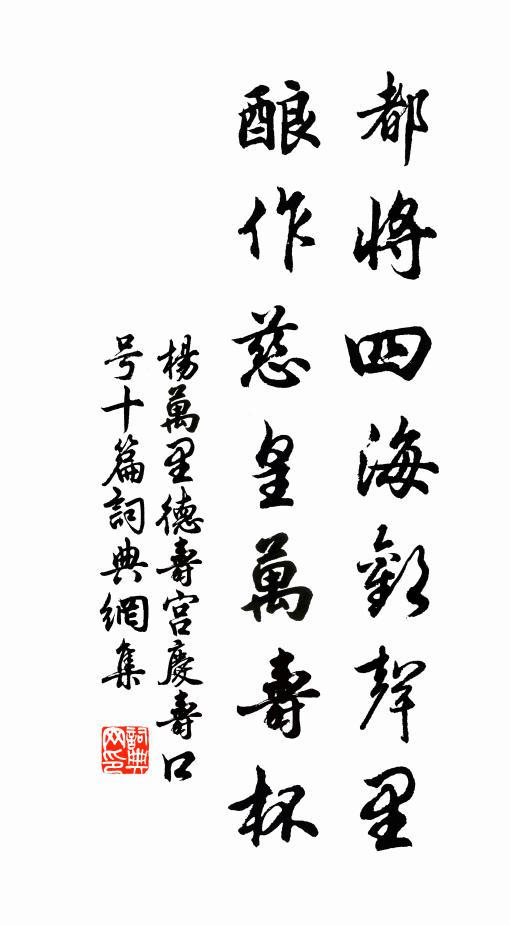 都將四海歡聲里
酿作慈皇萬壽杯
楊萬里德壽宮慶壽口
号十篇詞典網集
詞典网印